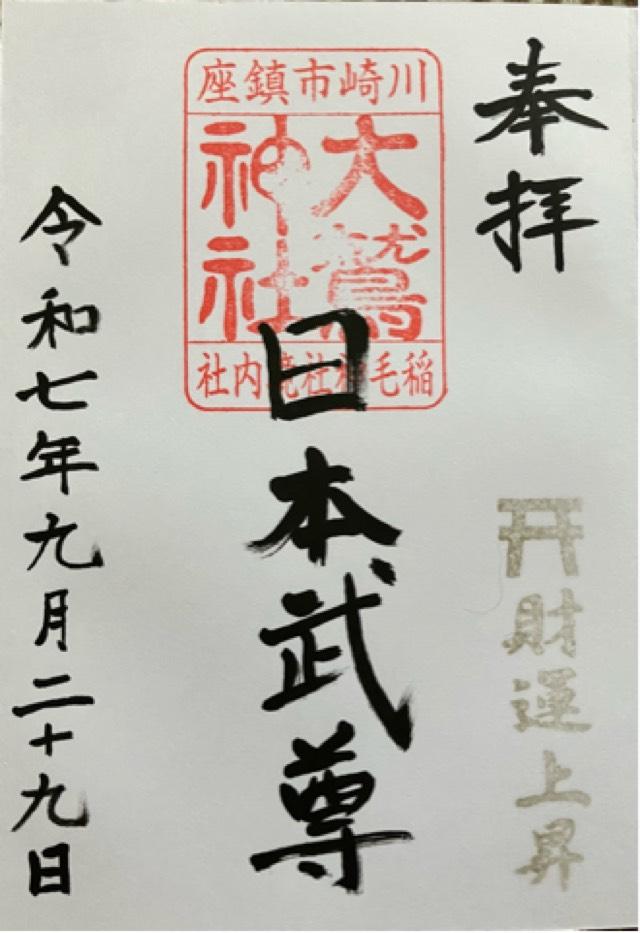 奉拝
財運上昇
川崎市鎮座
大鷲
神社
稲毛神社境内社
日本武尊
令和七年九月二十九日